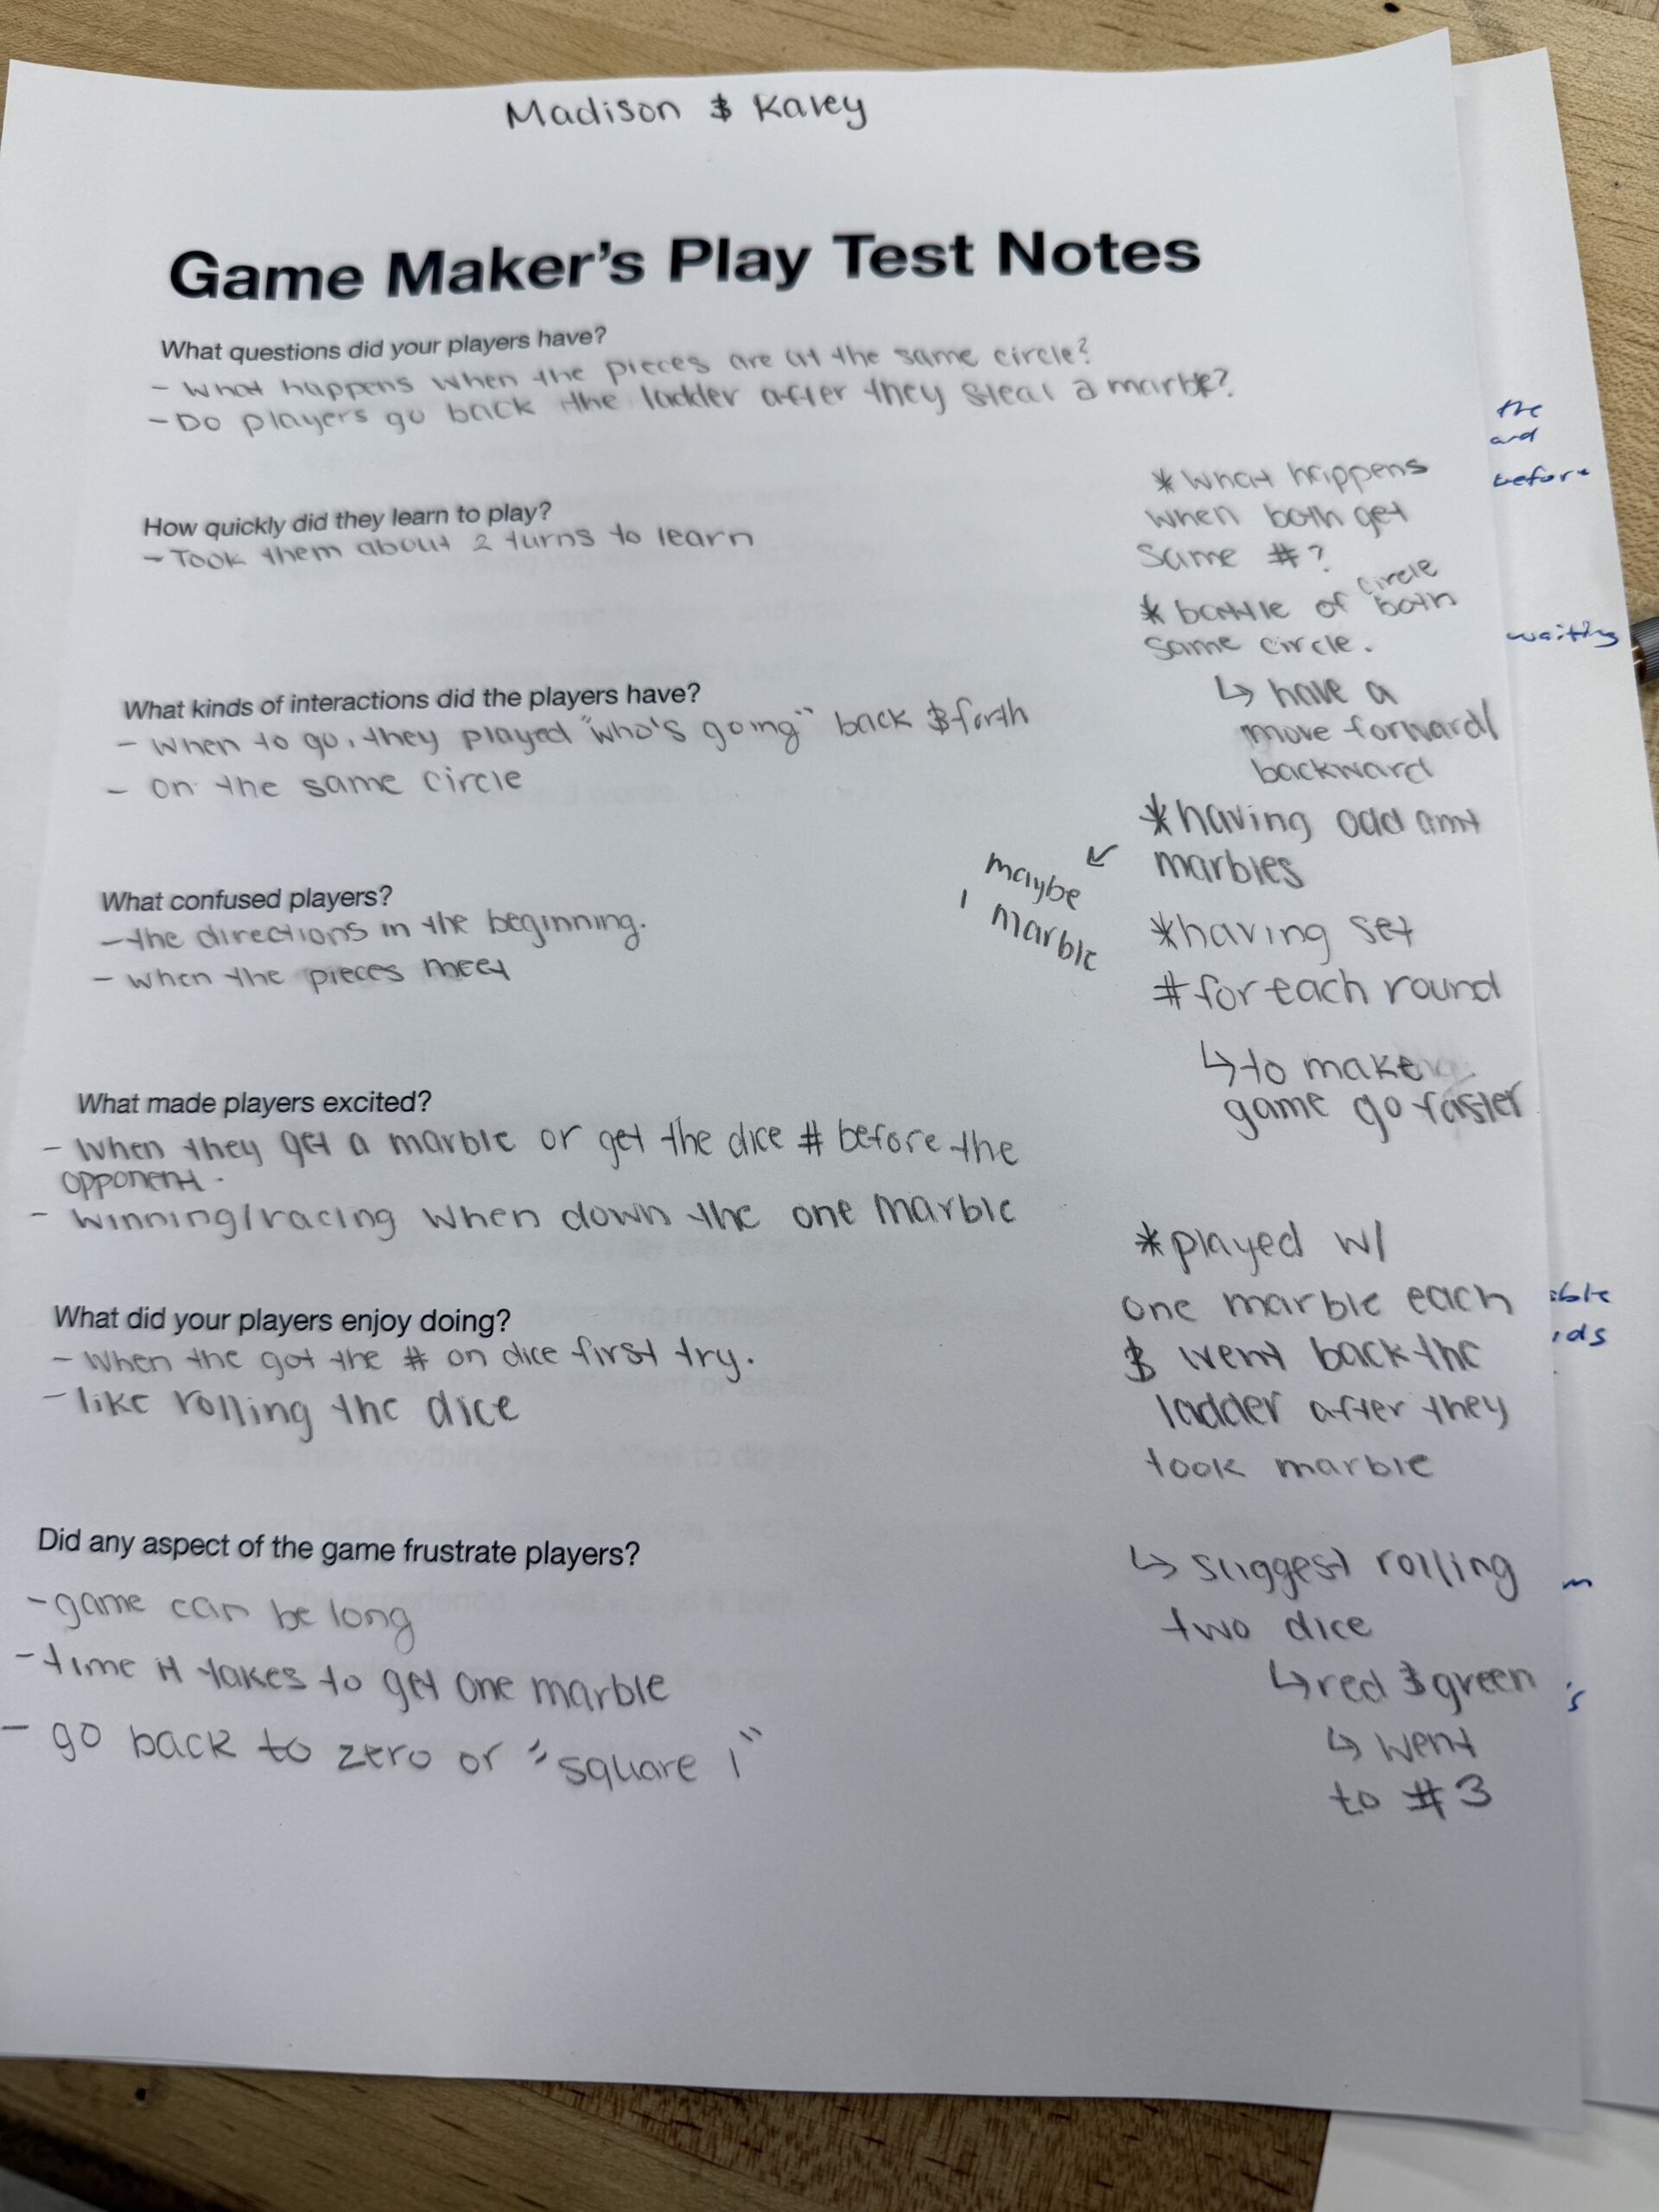 Madison & Kaley
Game Maker's Play Test Notes
What questions did your players have?
- What happens when the pieces are at the same circle?
- Do players go back the ladder after they steal a marble?
How quickly did they learn to play?
- Took them about 2 turns to learn
What kinds of interactions did the players have?
- When to go, they played "who's going" back & forth
- on the same circle
What confused players?
- the directions in the beginning.
- when the pieces meet
What made players excited?
- When they get a marble or get the dice # before the
opponent.
- winning/racing when down the one marble
What did your players enjoy doing?
- When the got the # on dice first try.
- like rolling the dice
Did any aspect of the game frustrate players?
- game can be long
- time it takes to get one marble
- go back to zero or "square 1"
* What happens
when both get
same # ?
circle
* battle of both
same circle.
↳ have a
move forward/
backward
* having odd amt
marbles
↙
maybe
1 marble
* having set
# for each round
↳ to make
game go faster
* played w/
one marble each
& went back the
ladder after they
took marble
↳ suggest rolling
two dice
↳ red & green
↳ went
to #3
the
and
before
waiting